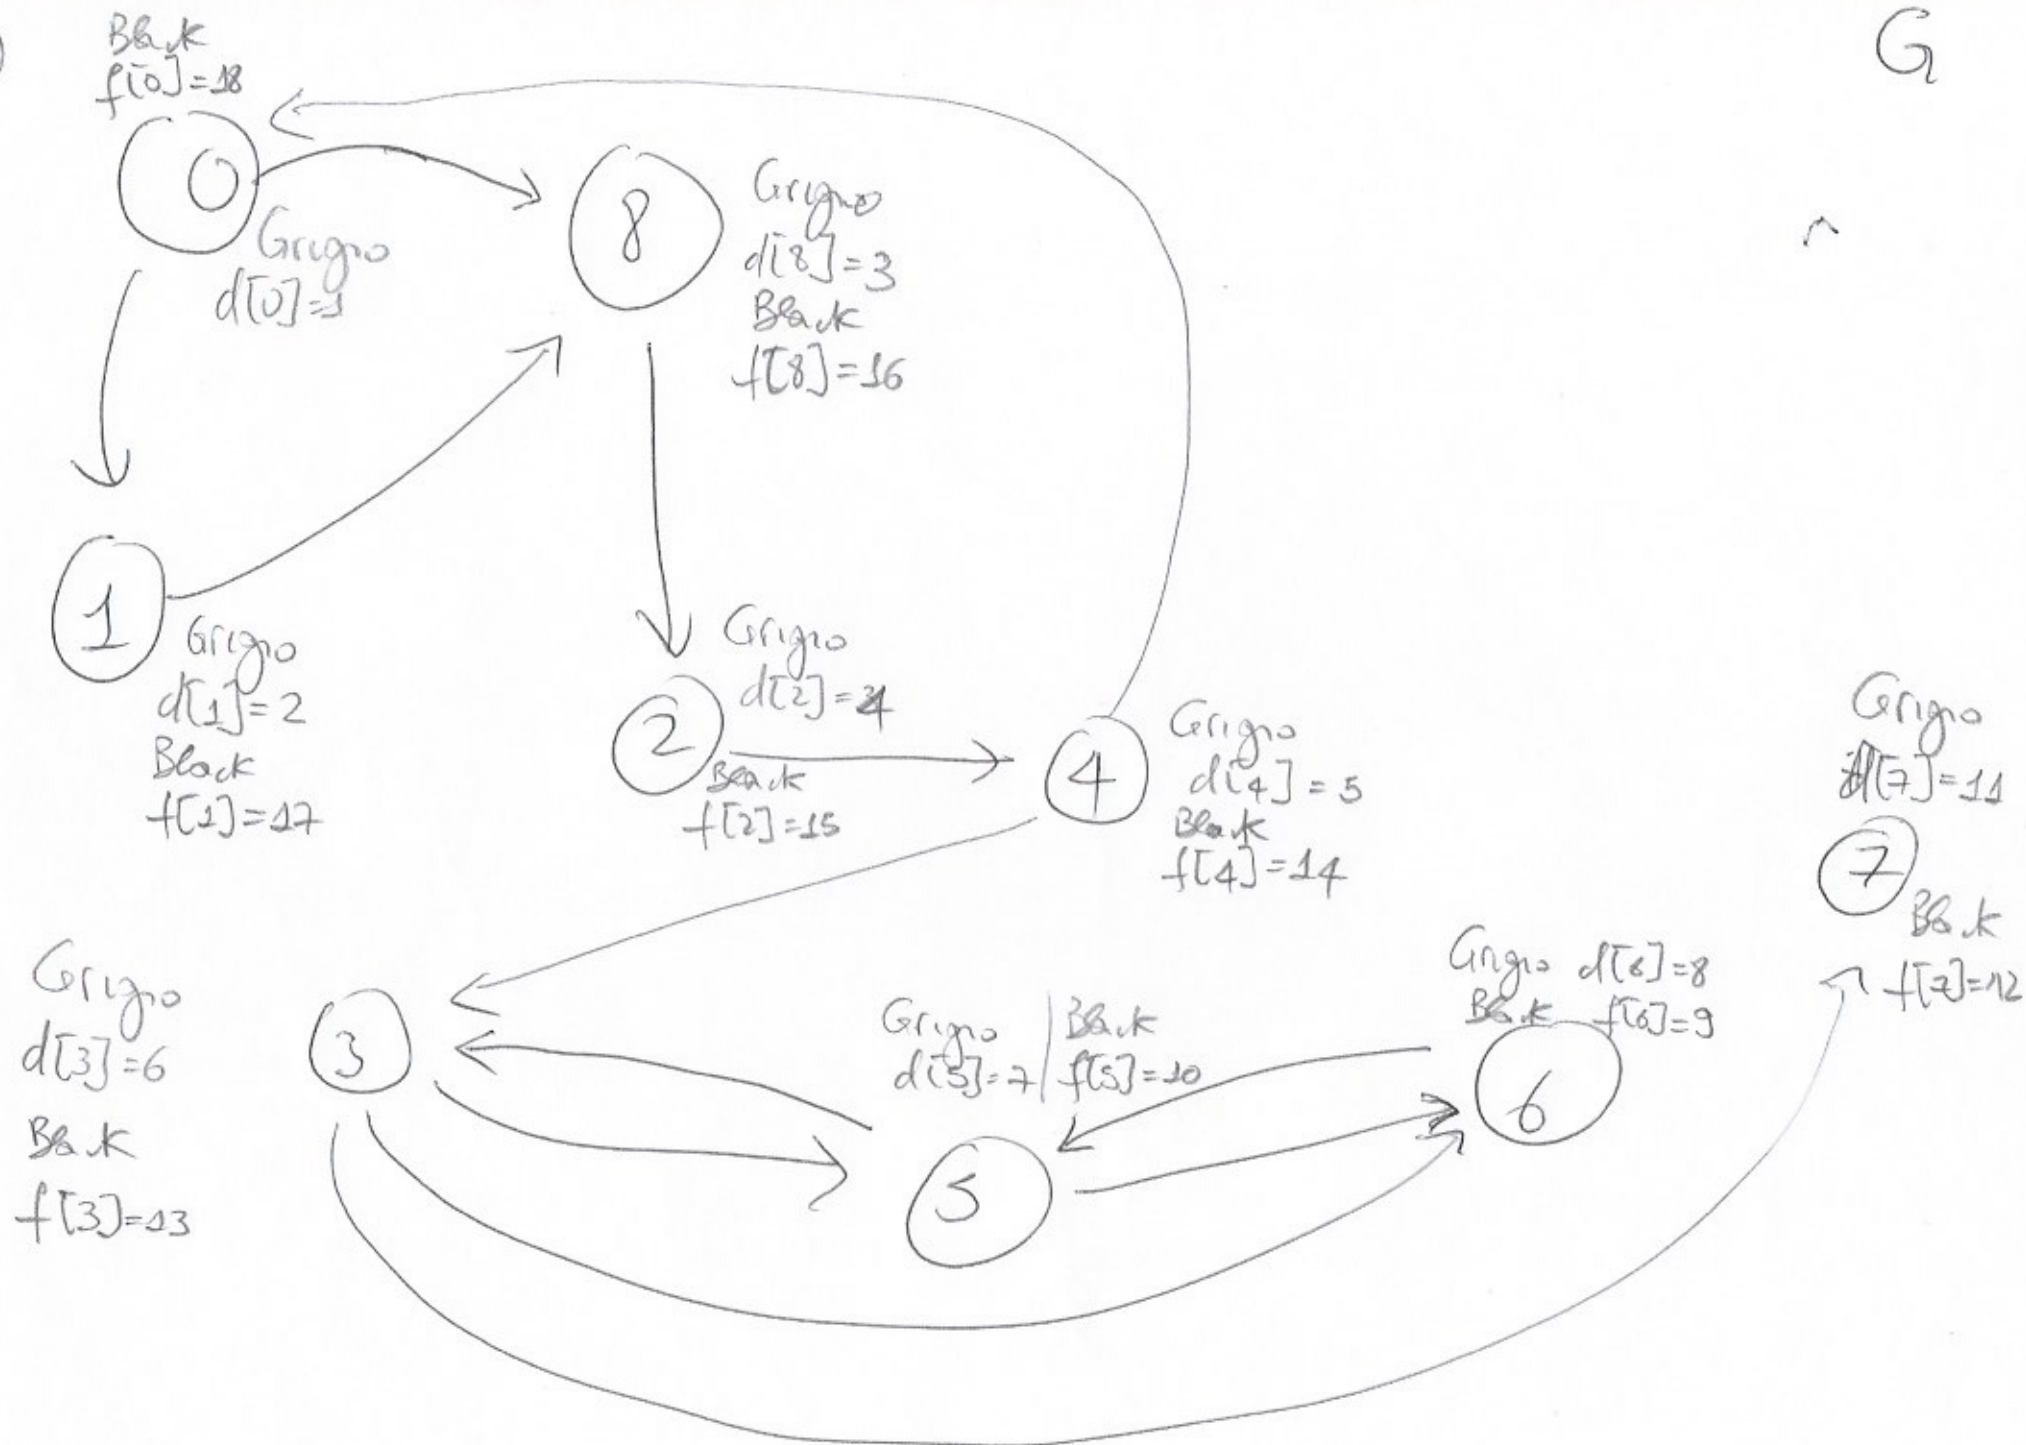 G
Black
f[0]=18
0
Grigio
d[0]=1
8
Grigio
d[8]=3
Black
f[8]=16
1
Grigio
d[1]=2
Black
f[1]=17
2
Grigio
d[2]=4
Black
f[2]=15
4
Grigio
d[4]=5
Black
f[4]=14
Grigio
d[7]=11
7
Black
f[7]=12
Grigio
d[3]=6
Black
f[3]=13
3
Grigio | Black
d[5]=7 | f[5]=10
5
Grigio d[6]=8
Black f[6]=9
6